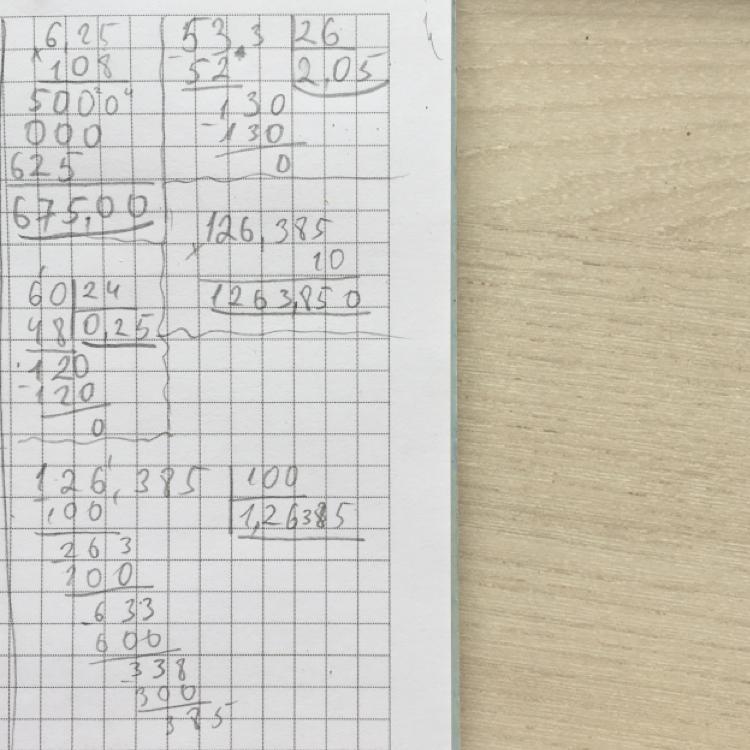 6,25
× 108
5000
000
625
675,00
53,3 26
- 52 2,05
130
- 130
0
126,385
× 10
1263,850
60 24
48 0,25
120
- 120
0
126,385 100
100 1,26385
263
200
633
600
338
300
385